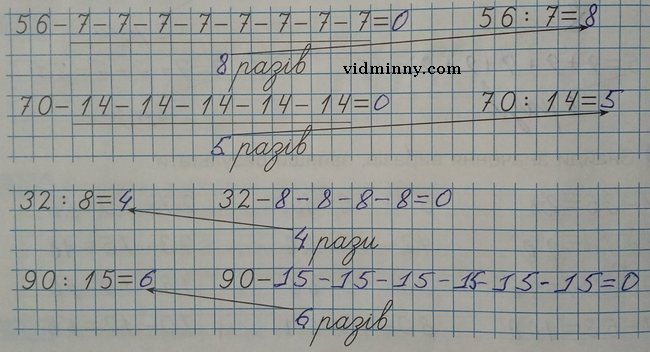 56-7-7-7-7-7-7-7-7=0 56:7=8
8 разів vidminny.com
70-14-14-14-14-14=0 70:14=5
5 разів
32:8=4 32-8-8-8-8=0
4 рази
90:15=6 90-15-15-15-15-15-15=0
6 разів